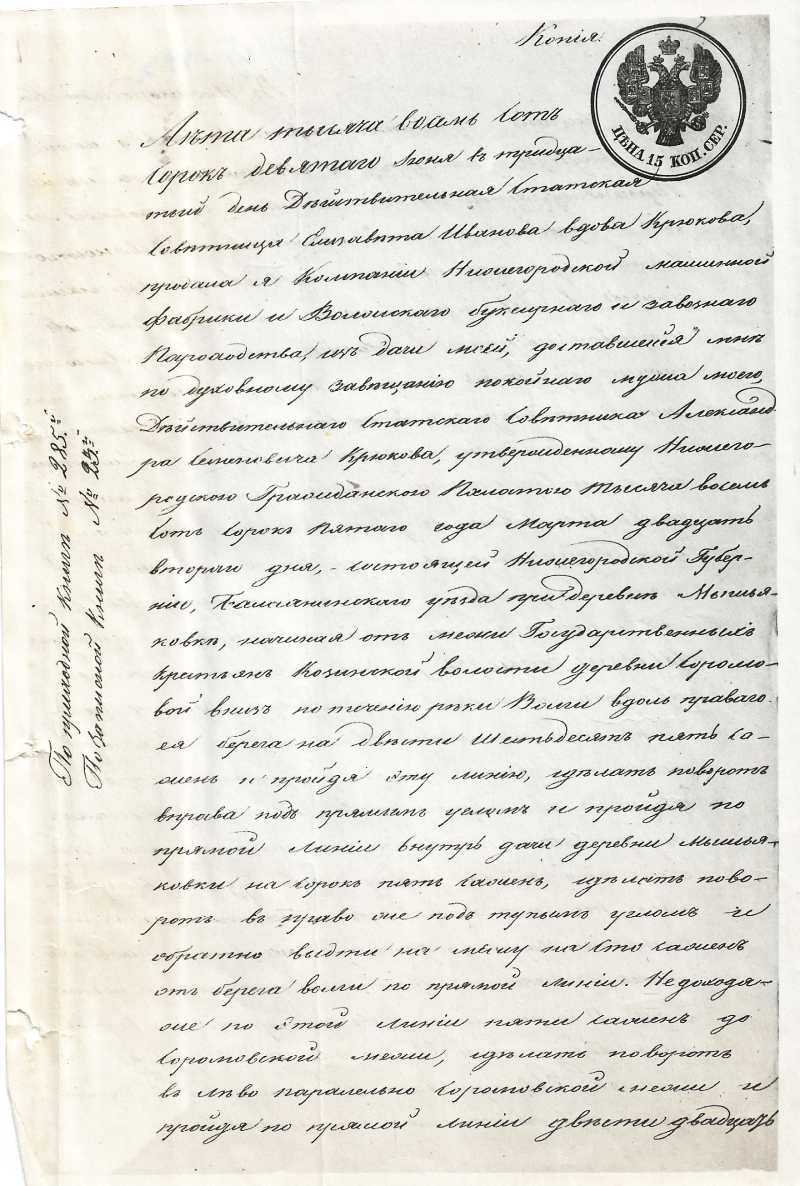 Копія.
ЦѢНА 15 КОП. СЕР.
Лѣта тысяча восемь сотъ
сорокъ девятаго Іюня въ тридца-
тый день Дѣйствительная Статская
Совѣтница Елизавѣта Иванова вдова Крюкова,
продала я Компаніи Нижегородской машинной
фабрики и Волжскаго буксирнаго и завознаго
Пароходства, изъ дачи моей, доставшейся мнѣ
по духовному завѣщанію покойнаго мужа моего,
Дѣйствительнаго Статскаго Совѣтника Александ-
ра Семеновича Крюкова, утвержденному Нижего-
родскою Гражданскою Палатою тысяча восемь
сотъ сорокъ пятаго года Марта двадцать
втораго дня, - состоящей Нижегородской Губер-
ніи, Балахнинскаго уѣзда при деревнѣ Мышья-
ковкѣ, начиная отъ межи Государственныхъ
крестьянъ Козинской волости деревни Сормо-
вой внизъ по теченію рѣки Волги вдоль праваго
ея берега на двѣсти шестьдесятъ пять са-
женъ и пройдя эту линію, сдѣлать поворотъ
вправо подъ прямымъ угломъ и пройдя по
прямой линіи внутрь дачи деревни Мышья-
ковки на сорокъ пять саженъ, сдѣлать пово-
ротъ въ право же подъ тупымъ угломъ и
обратно выдти на межу на сто саженъ
отъ берега волги по прямой линіи. Недоходя-
же по этой линіи пяти саженъ до
Сормовской межи, сдѣлать поворотъ
въ лѣво паралельно Сормовской межи и
пройдя по прямой линіи двѣсти двадцать
По приходной Книгѣ № 285.й
По записной Книгѣ №